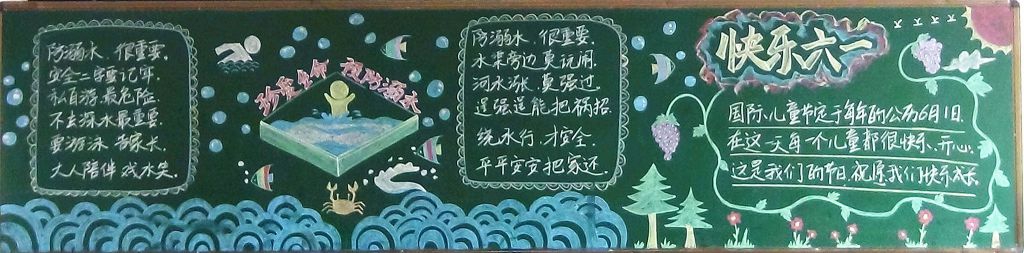 防溺水、很重要。
安全二字要记牢。
私自游.最危险
不去深水最重要.
要游泳、告家长.
大人陪伴戏水笑.
珍爱生命 预防溺水
防溺水、很重要.
水渠旁边莫玩闹.
河水涨、莫强过
逞强逞能把祸招.
绕水行、才安全.
平平安安把家还.
快乐六一
国际儿童节定于每年的公历6月1日.
在这一天每一个儿童都很快乐、开心.
这是我们的节日,祝愿我们快乐成长.